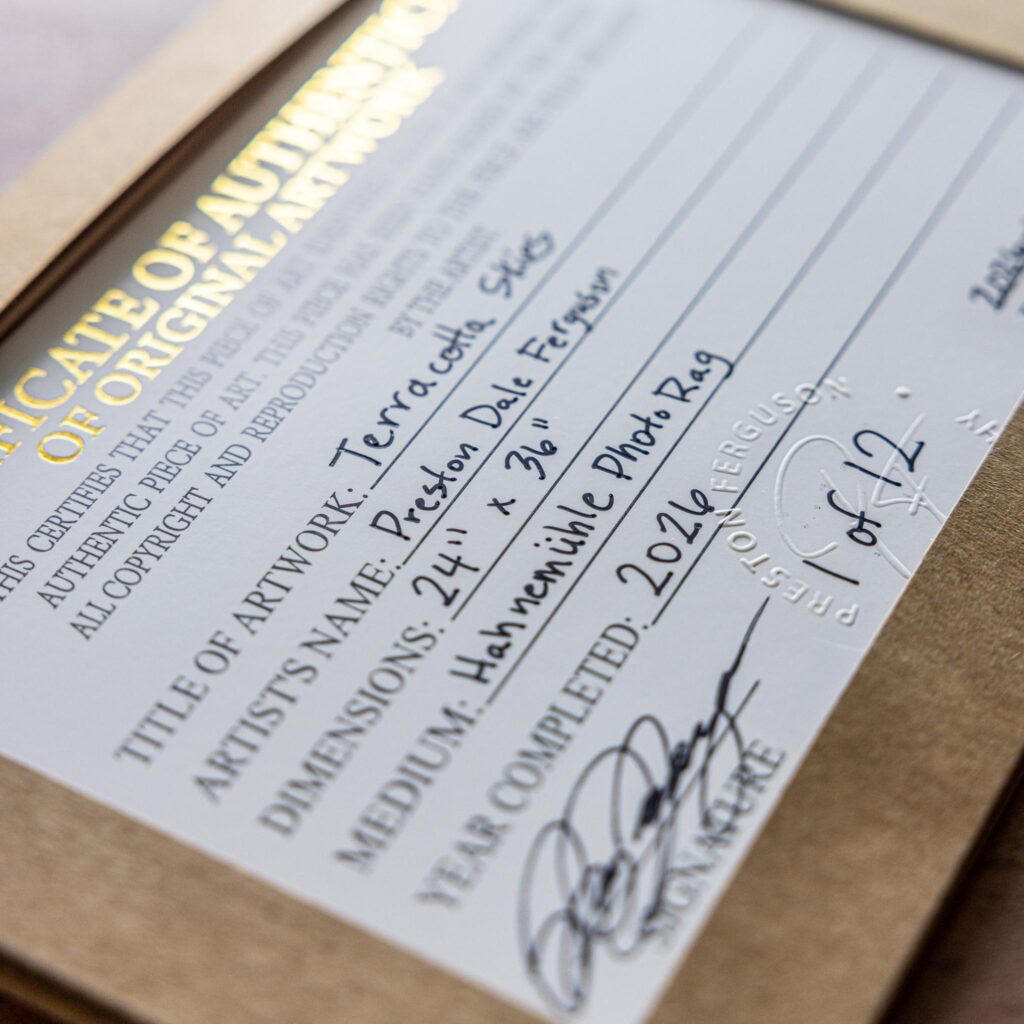 OF ORIGINAL ARTWORK
THIS CERTIFIES THAT THIS PIECE OF ART
AUTHENTIC PIECE OF ART. THIS PIECE HAS
ALL COPYRIGHT AND REPRODUCTION RIGHTS TO THE
BY THE ARTIST
TITLE OF ARTWORK: Terracotta Skies
ARTIST'S NAME: Preston Dale Ferguson
DIMENSIONS: 24" x 36"
MEDIUM: Hahnemühle Photo Rag
YEAR COMPLETED: 2026
PRESTON FERGUSON
1 of 12
SIGNATURE